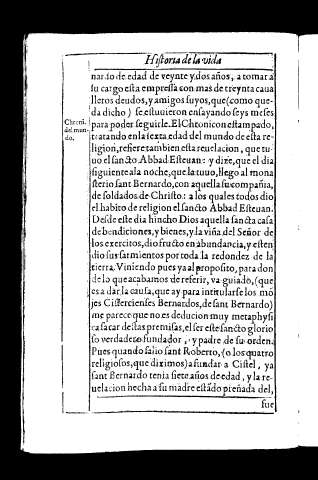 Historia de la vida
nardo de edad de veynte y dos años, a tomar a
su cargo esta empressa con mas de treynta caua
lleros deudos, y amigos suyos, que (como que-
da dicho) se estuuieron ensayando seys meses
para poder seguirle. El Chronicon estampado,
tratando en la sexta edad del mundo de esta re-
ligion, refiere tambien esta reuelacion, que tu-
uo el sancto Abbad Esteuan: y dize, que el dia
siguiente a la noche, que la tuuo, llego al mona
sterio sant Bernardo, con aquella su compañia,
de soldados de Christo: a los quales todos dio
el habito de religion el sancto Abbad Esteuan.
Desde este dia hincho Dios aquella sancta casa
de bendiciones, y bienes, y la viña del Señor de
los exercitos, dio fructo en abundancia, y esten
dio sus sarmientos por toda la redondez de la
tierra. Viniendo pues ya al proposito, para don
de lo que acabamos de referir, va guiado, (que
es a dar la causa, que ay para intitularse los mō
jes Cistercienses Bernardos, de sant Bernardo)
me parece que no es deducion muy metaphysi
ca sacar destas premisas, el ser este sancto glorio
so verdadero fundador, y padre de su orden.
Pues quando salio sant Roberto, (o los quatro
religiosos, que diximos) a fundar a Cistel, ya
sant Bernardo tenia siete años de edad, y la re-
uelacion hecha a su madre estādo preñada del,
fue
Chroni.
del mun
do.